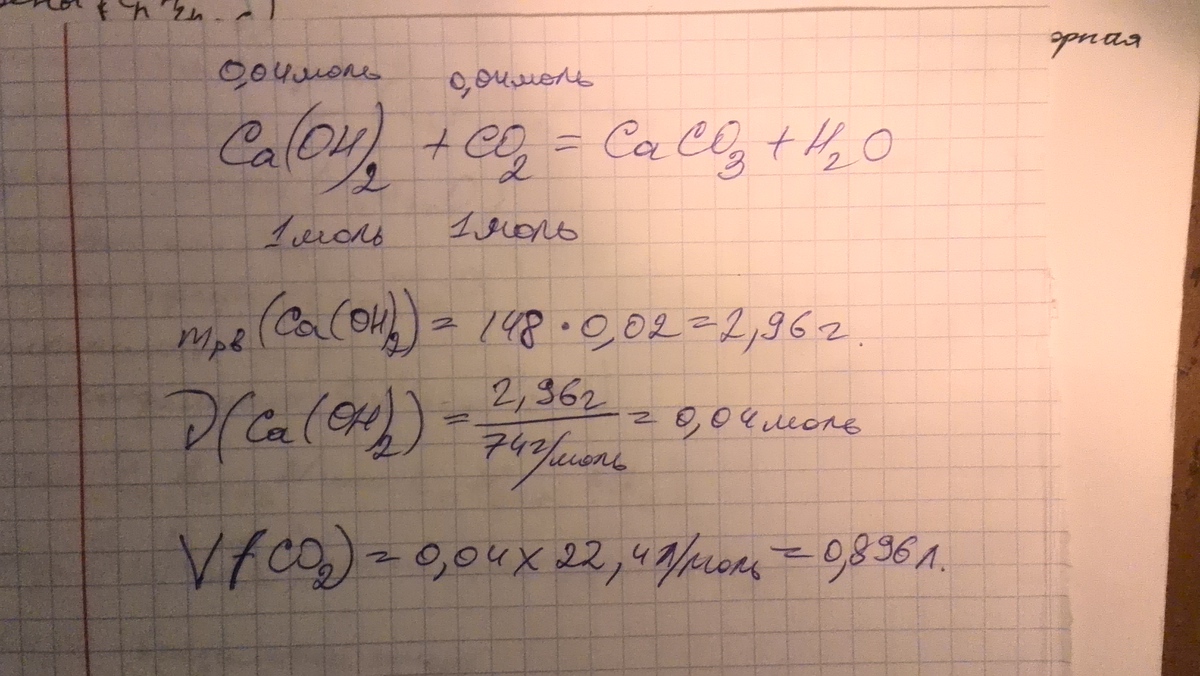 орная
0,04моль 0,04моль
Ca(OH)2 + CO2 = CaCO3 + H2O
1моль 1моль
mрв (Ca(OH)2) = 148 · 0,02 = 2,96г.
ν(Ca(OH)2) = 2,96г / 74г/моль = 0,04моль
V(CO2) = 0,04 x 22,4л/моль = 0,896л.